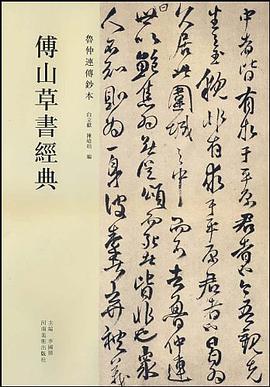 中者皆有求于平原君者也今吾觀先
生玉貌非有求于平原君者也曷為
久居此圍城之中而不去魯仲連
世以鮑焦為無從頌而死皆非也衆
人不知則為一身彼秦棄禮義
魯仲連傳鈔本
白立獻 編
傅山草書經典
主編
河南美術出版社